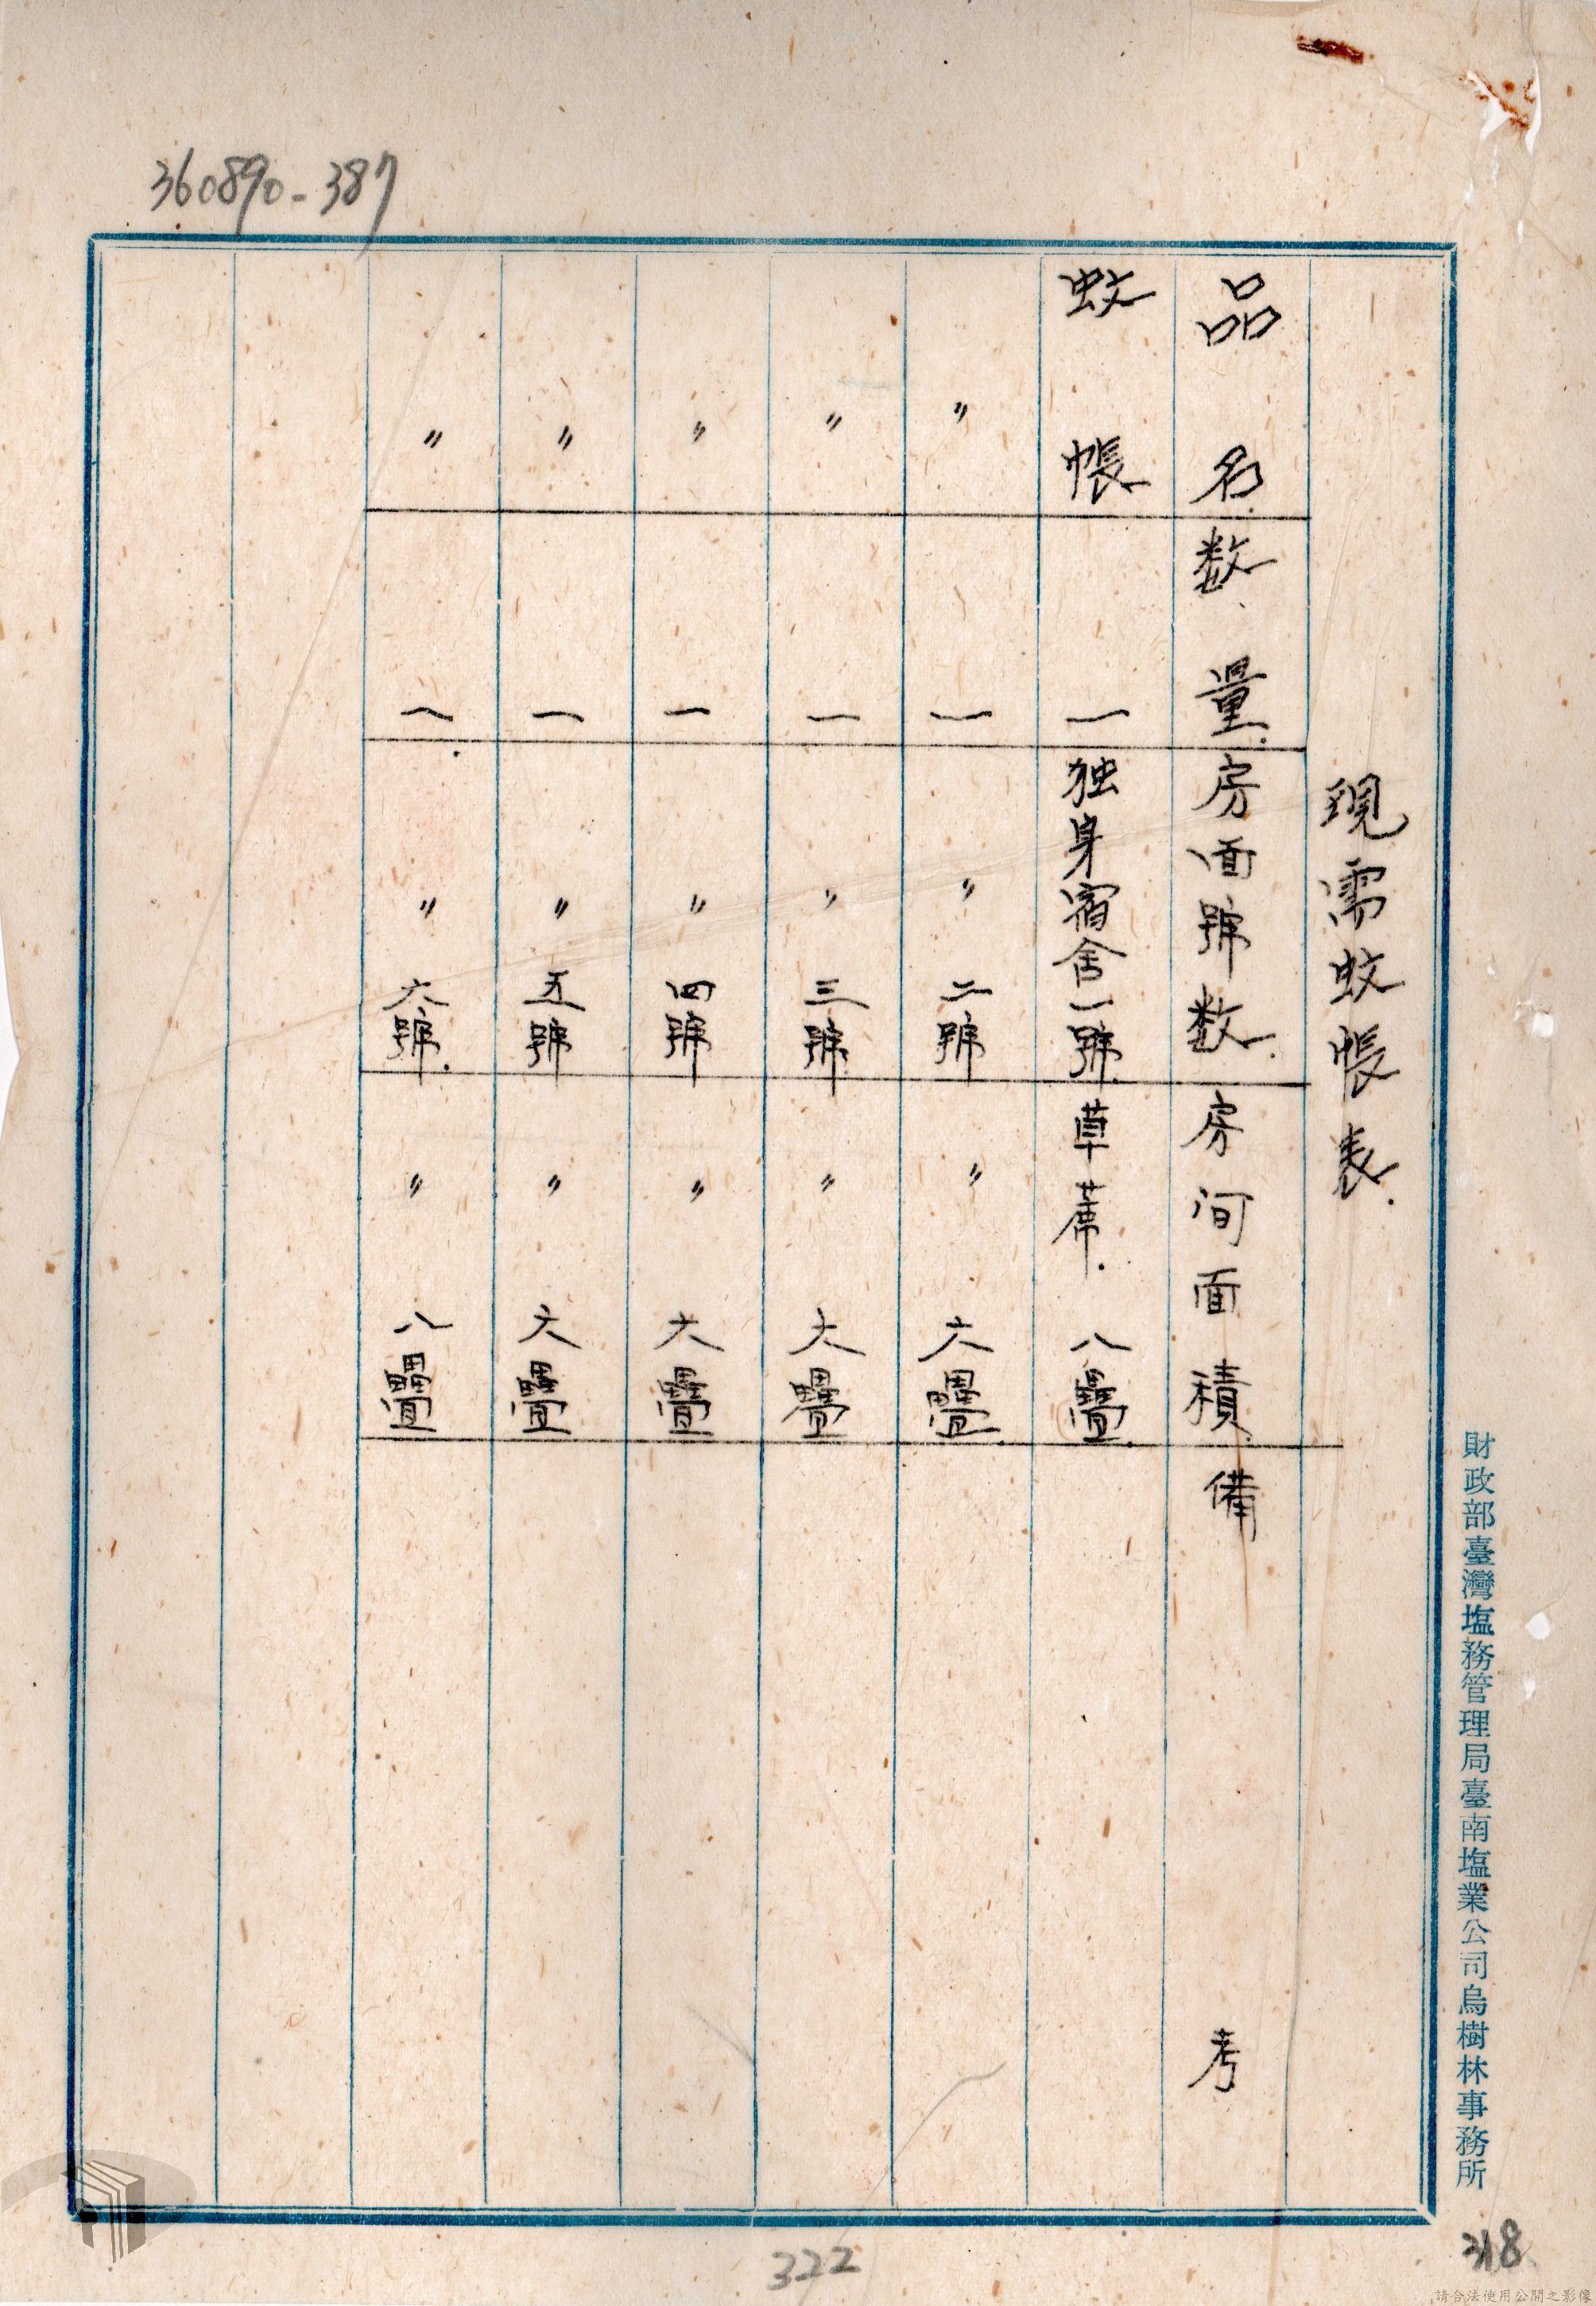 360890-387
現需蚊帳表.
品名.数量.房面號数.房间面積.備考
蚊帳 一 独身宿舍一號. 草蓆. 八疊.
〃 一 〃 二號 〃 六疊.
〃 一 〃 三號 〃 六疊
〃 一 〃 四號 〃 六疊
〃 一 〃 五號 〃 六疊
〃 一. 〃 六號. 〃 八疊
財政部臺灣塩務管理局臺南塩業公司烏樹林事務所
322
318
請合法使用公開之影像